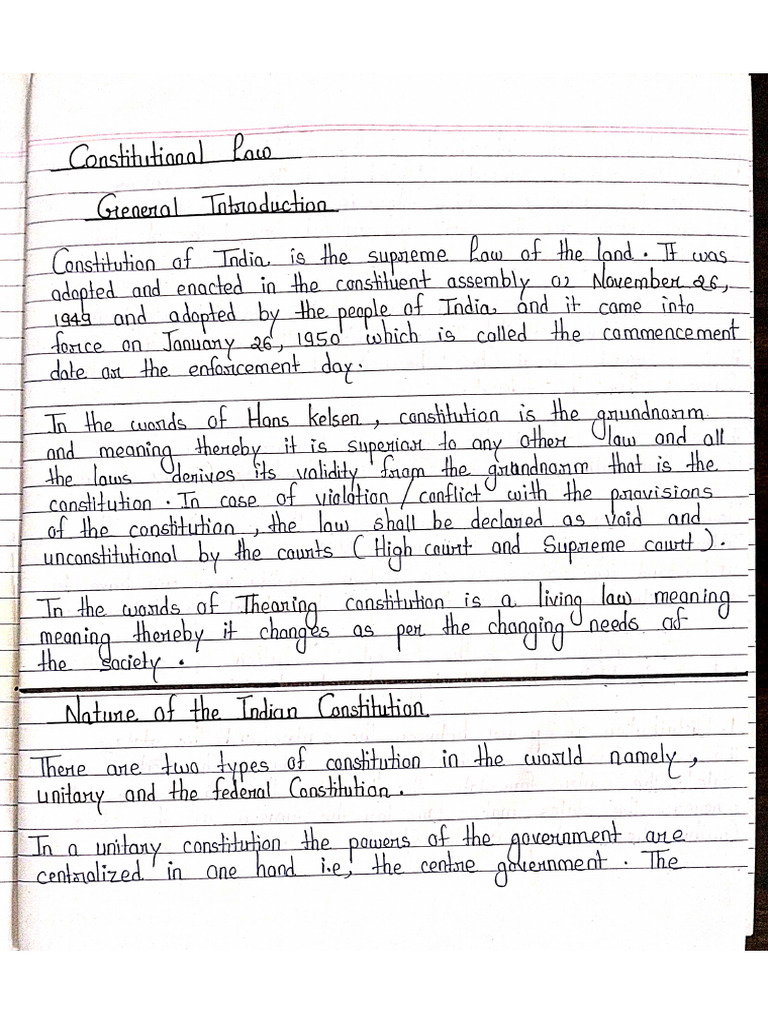 Constitutional Law
General Introduction
Constitution of India is the supreme Law of the land. It was
adopted and enacted in the constituent assembly on November 26,
1949 and adopted by the people of India and it came into
force on January 26, 1950 which is called the commencement
date or the enforcement day.
In the words of Hans Kelsen, constitution is the grundnorm
and meaning thereby it is superior to any other law and all
the laws derives its validity from the grundnorm that is the
constitution. In case of violation / conflict with the provisions
of the constitution, the law shall be declared as void and
unconstitutional by the courts (High court and Supreme court).
In the words of Thearing constitution is a living law meaning
meaning thereby it changes as per the changing needs of
the society.
Nature of the Indian Constitution
There are two types of constitution in the world namely,
unitary and the federal Constitution.
In a unitary constitution the powers of the government are
centralized in one hand i.e, the centre government. The